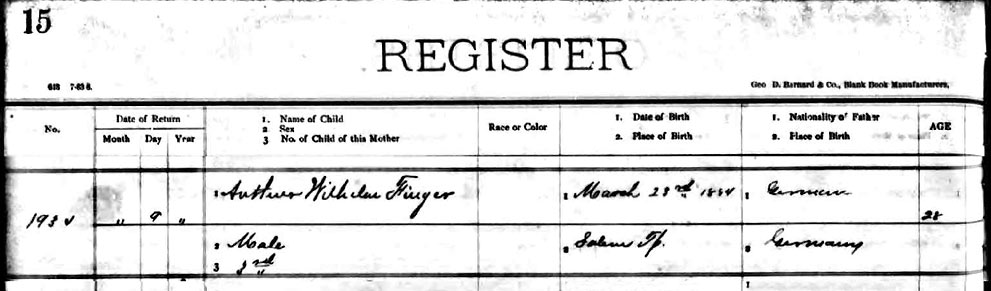 15
REGISTER
613 7-83 8.
Geo D. Barnard & Co., Blank Book Manufacturers,
No.
Date of Return
Month Day Year
1. Name of Child
2 Sex
3 No. of Child of this Mother
Race or Color
1. Date of Birth
2. Place of Birth
1. Nationality of Father
2. Place of Birth
AGE
1 Arthur Wilhelm Finger
1 March 23rd 1884
1 German
193
" 9 "
28
2 Male
2 Salem Tp.
2 Germany
3 3rd
"
1